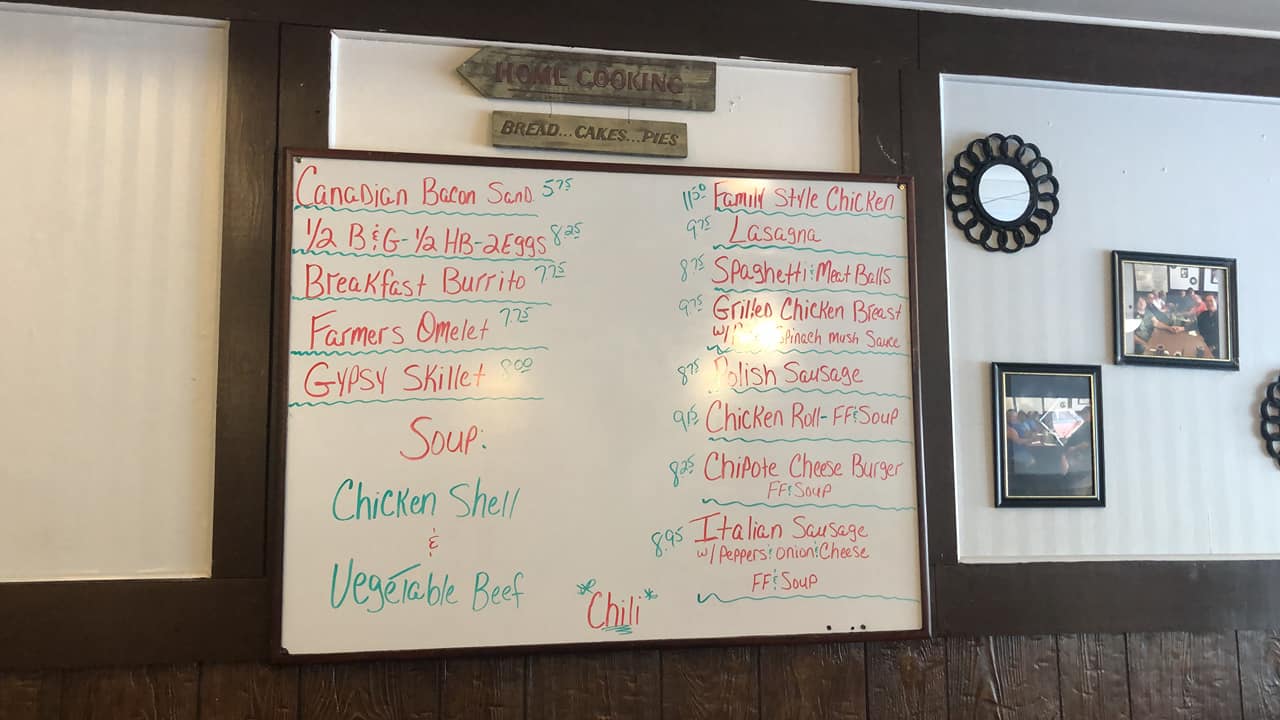 HOME COOKING
BREAD...CAKES...PIES
Canadian Bacon Sand. 5.75
1/2 B&G-1/2 HB-2Eggs 8.25
Breakfast Burrito 7.75
Farmers Omelet 7.75
Gypsy Skillet 8.00
Soup:
Chicken Shell
&
Vegetable Beef
*Chili*
11.50 Family Style Chicken
9.75 Lasagna
8.75 Spaghetti & Meat Balls
9.75 Grilled Chicken Breast
w/ Spinach Mush Sauce
8.75 Polish Sausage
Chicken Roll- FF & Soup
8.25 Chipote Cheese Burger
FF & Soup
8.95 Italian Sausage
w/ Peppers & Onion & Cheese
FF & Soup